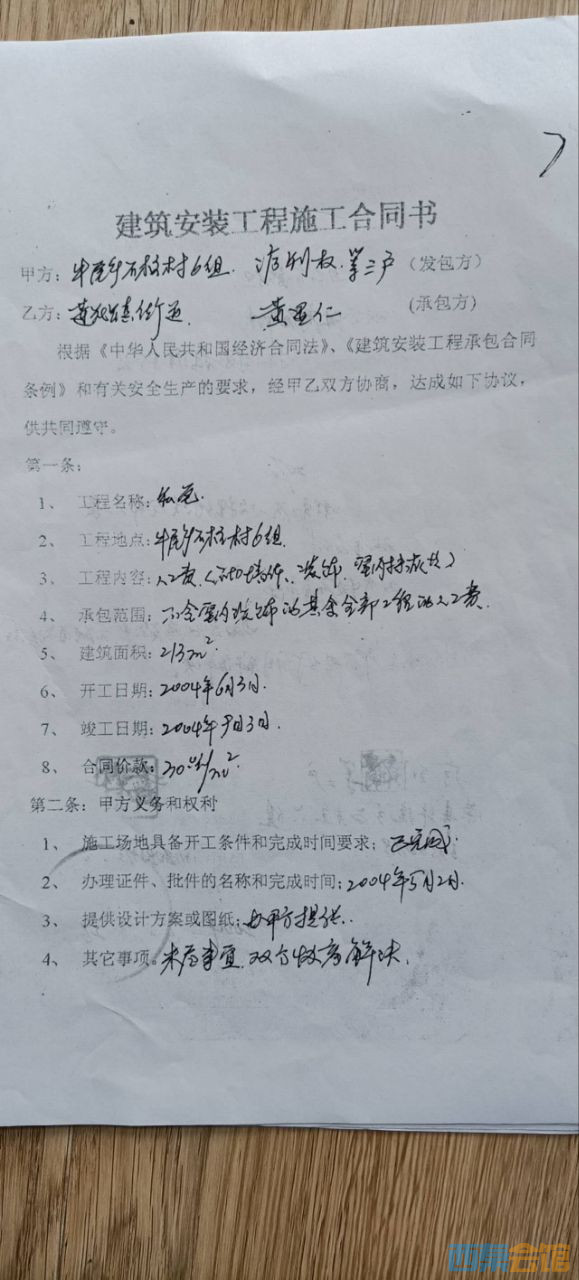 建筑安装工程施工合同书
甲方: 牛尾乡石柱村6组. 第三户 (发包方)
乙方: (承包方)
根据《中华人民共和国经济合同法》、《建筑安装工程承包合同
条例》和有关安全生产的要求，经甲乙双方协商，达成如下协议，
供共同遵守。
第一条:
1、 工程名称:
2、 工程地点: 牛尾乡石柱村6组.
3、 工程内容: 人工费
4、 承包范围: 不含室内装饰的其余全部工程的人工费.
5、 建筑面积: 213m².
6、 开工日期: 2004年6月3日.
7、 竣工日期: 2004年9月3日.
8、 合同价款: /m²
第二条: 甲方义务和权利
1、 施工场地具备开工条件和完成时间要求; 已完成.
2、 办理证件、批件的名称和完成时间; 2004年5月2日.
3、 提供设计方案或图纸; 由甲方提供.
4、 其它事项。未尽事宜, 双方协商解决.
西泵会馆